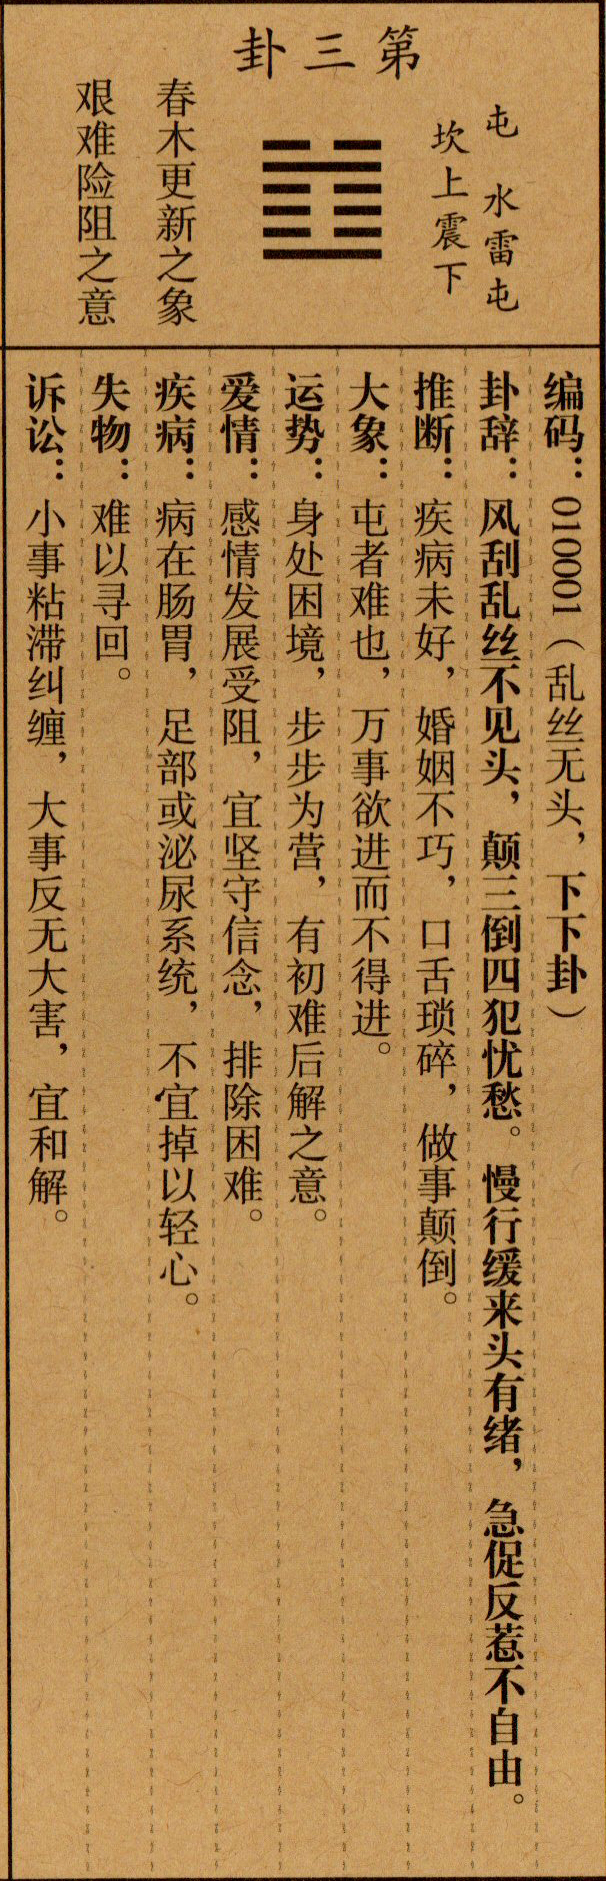 第三卦
屯 水雷屯
坎上震下
春木更新之象
艰难险阻之意
编码：010001（乱丝无头，下下卦）
卦辞：风刮乱丝不见头，颠三倒四犯忧愁。慢行缓来头有绪，急促反惹不自由。
推断：疾病未好，婚姻不巧，口舌琐碎，做事颠倒。
大象：屯者难也，万事欲进而不得进。
运势：身处困境，步步为营，有初难后解之意。
爱情：感情发展受阻，宜坚守信念，排除困难。
疾病：病在肠胃，足部或泌尿系统，不宜掉以轻心。
失物：难以寻回。
诉讼：小事粘滞纠缠，大事反无大害，宜和解。